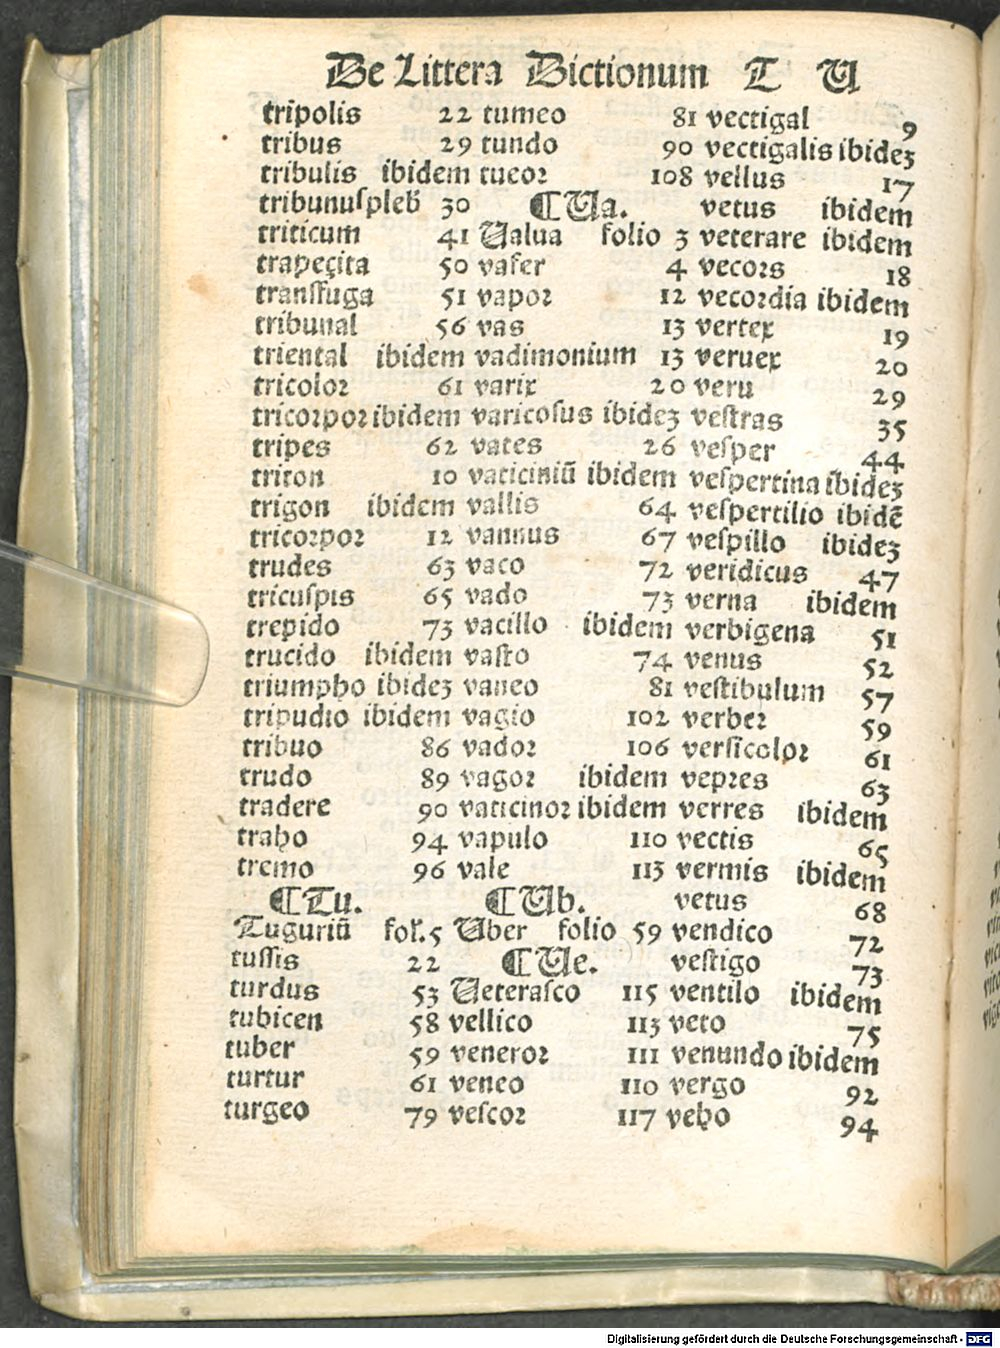 De Littera Dictionum T U
tripolis 22
tribus 29
tribulis ibidem
tribunuſpleb̃ 30
triticum 41
trapeçita 50
tranſfuga 51
tribunal 56
triental ibidem
tricolor 61
tricorpor ibidem
tripes 62
triton 10
trigon ibidem
tricorpor 12
trudes 63
tricuſpis 65
trepido 73
trucido ibidem
triumpho ibideꝫ
tripudio ibidem
tribuo 86
trudo 89
tradere 90
traho 94
tremo 96
⸿Tu.
Tuguriũ fol. 5
tuſſis 22
turdus 53
tubicen 58
tuber 59
turtur 61
turgeo 79
tumeo 81
tundo 90
tueor 108
⸿Ua.
Ualua folio 3
vafer 4
vapor 12
vas 13
vadimonium 13
varix 20
varicoſus ibideꝫ
vates 26
vaticiniũ ibidem
vallis 64
vannus 67
vaco 72
vado 73
vacillo ibidem
vaſto 74
vaneo 81
vagio 102
vador 106
vagor ibidem
vaticinor ibidem
vapulo 110
vale 113
⸿Ub.
Uber folio 59
⸿Ue.
Ueteraſco 115
vellico 113
veneror 111
veneo 110
veſcor 117
vectigal 9
vectigalis ibideꝫ
vellus 17
vetus ibidem
veterare ibidem
vecors 18
vecordia ibidem
vertex 19
veruex 20
veru 29
veſtras 35
veſper 44
veſpertina ibideꝫ
veſpertilio ibidẽ
veſpillo ibideꝫ
veridicus 47
verna ibidem
verbigena 51
venus 52
veſtibulum 57
verber 59
verſicolor 61
vepres 63
verres ibidem
vectis 65
vermis ibidem
vetus 68
vendico 72
veſtigo 73
ventilo ibidem
veto 75
venundo ibidem
vergo 92
veho 94
Digitalisierung gefördert durch die Deutsche Forschungsgemeinschaft - DFG